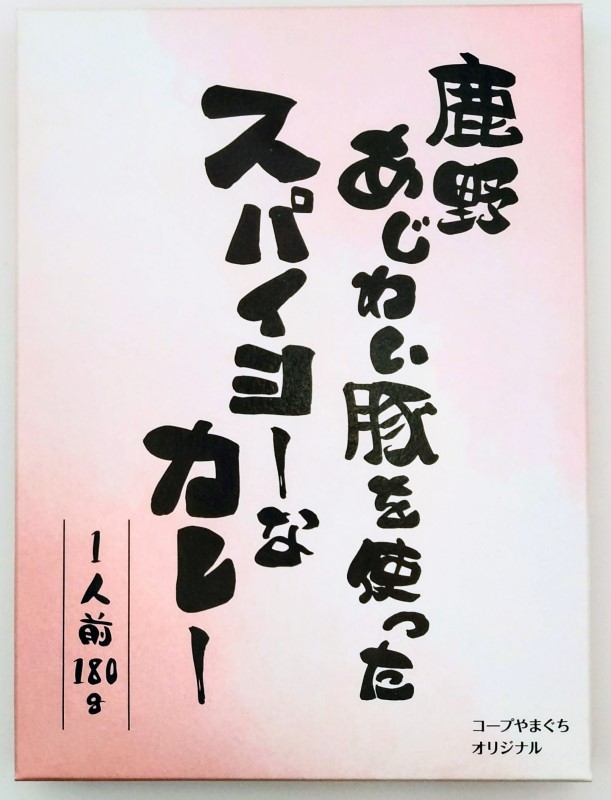 鹿野
あじわい豚を使った
スパイヨーな
カレー
1人前180g
コープやまぐち
オリジナル